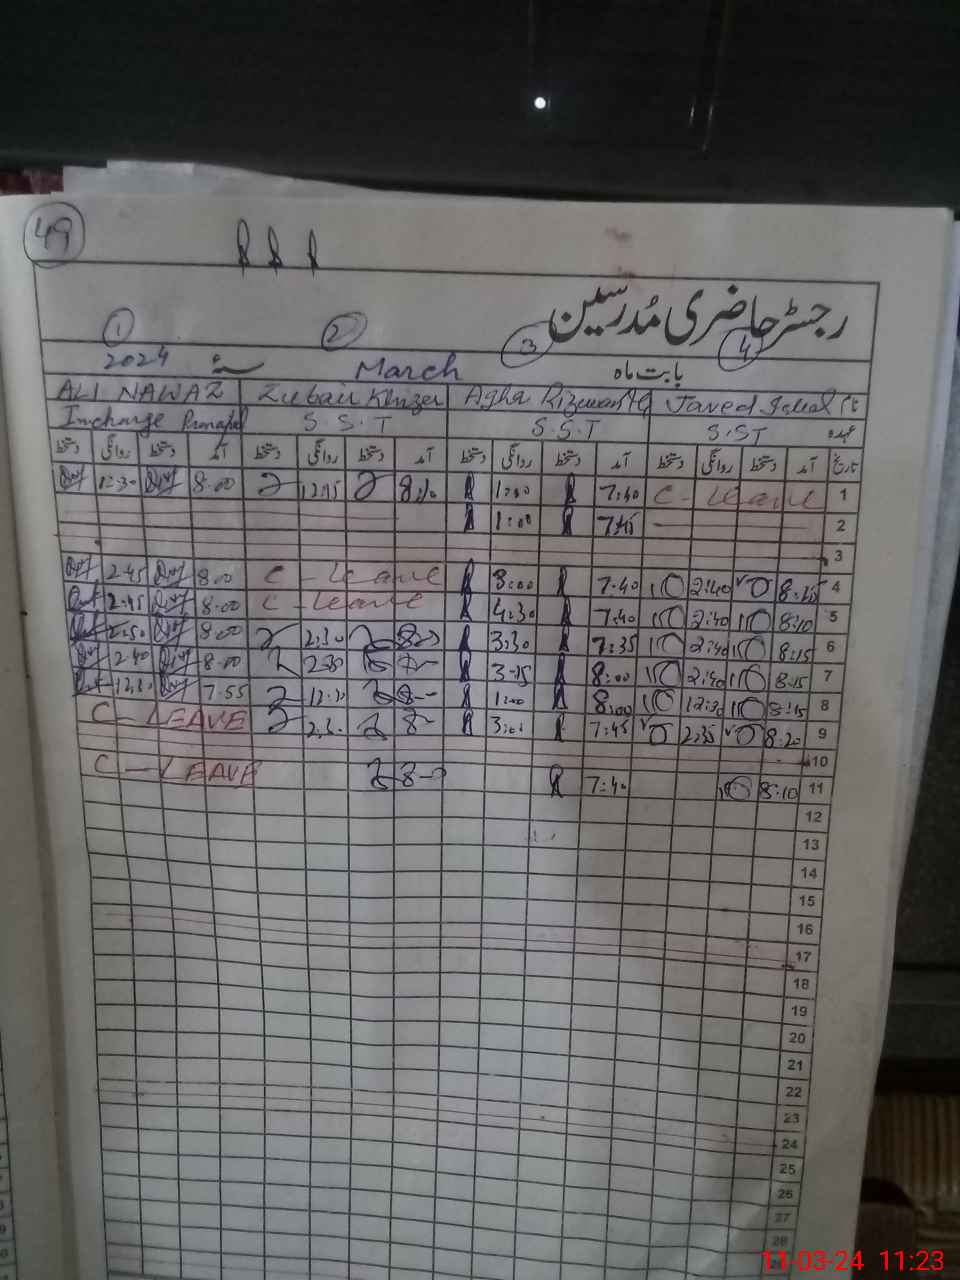 49
رجسٹر حاضری مُدرسین
1 2 3 4
2024 سنہ March بابت ماہ
ALI NAWAZ Zubair Agha Javed Iqbal نام
Incharge S.S.T S.S.T S.ST عہدہ
دستخط روانگی دستخط آمد دستخط روانگی دستخط آمد دستخط روانگی دستخط آمد دستخط روانگی دستخط آمد تاریخ
12:30 8.00 12:15 8:10 1:00 7:40 C - Leave 1
1:00 7:45 2
3
2.45 8.00 C - Leave 3:00 7.40 2:40 8:15 4
2.45 8.00 C - Leave 4:30 7.40 2:40 8:10 5
2.50 8.00 2:30 3:30 7:35 2:40 8:15 6
2.40 8.00 2.30 3:15 8:00 2:40 8:15 7
7.55 12:30 1:00 8:00 12:30 8:15 8
C - LEAVE 2.30 8 3:00 7:45 2:35 8:20 9
10
C - LEAVE 7:40 8:10 11
12
13
14
15
16
17
18
19
20
21
22
23
24
25
26
27
28
11-03-24 11:23